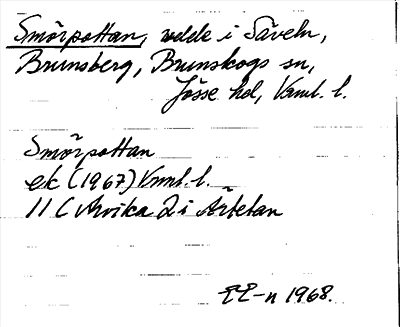 Smörpottan, udde i Säveln,
Brunsberg, Brunskogs sn,
Jösse hd, Vrml. l.
Smörpottan
ek (1967) Vrml. l.
11 C Arvika 2 i Årbetan
1968.